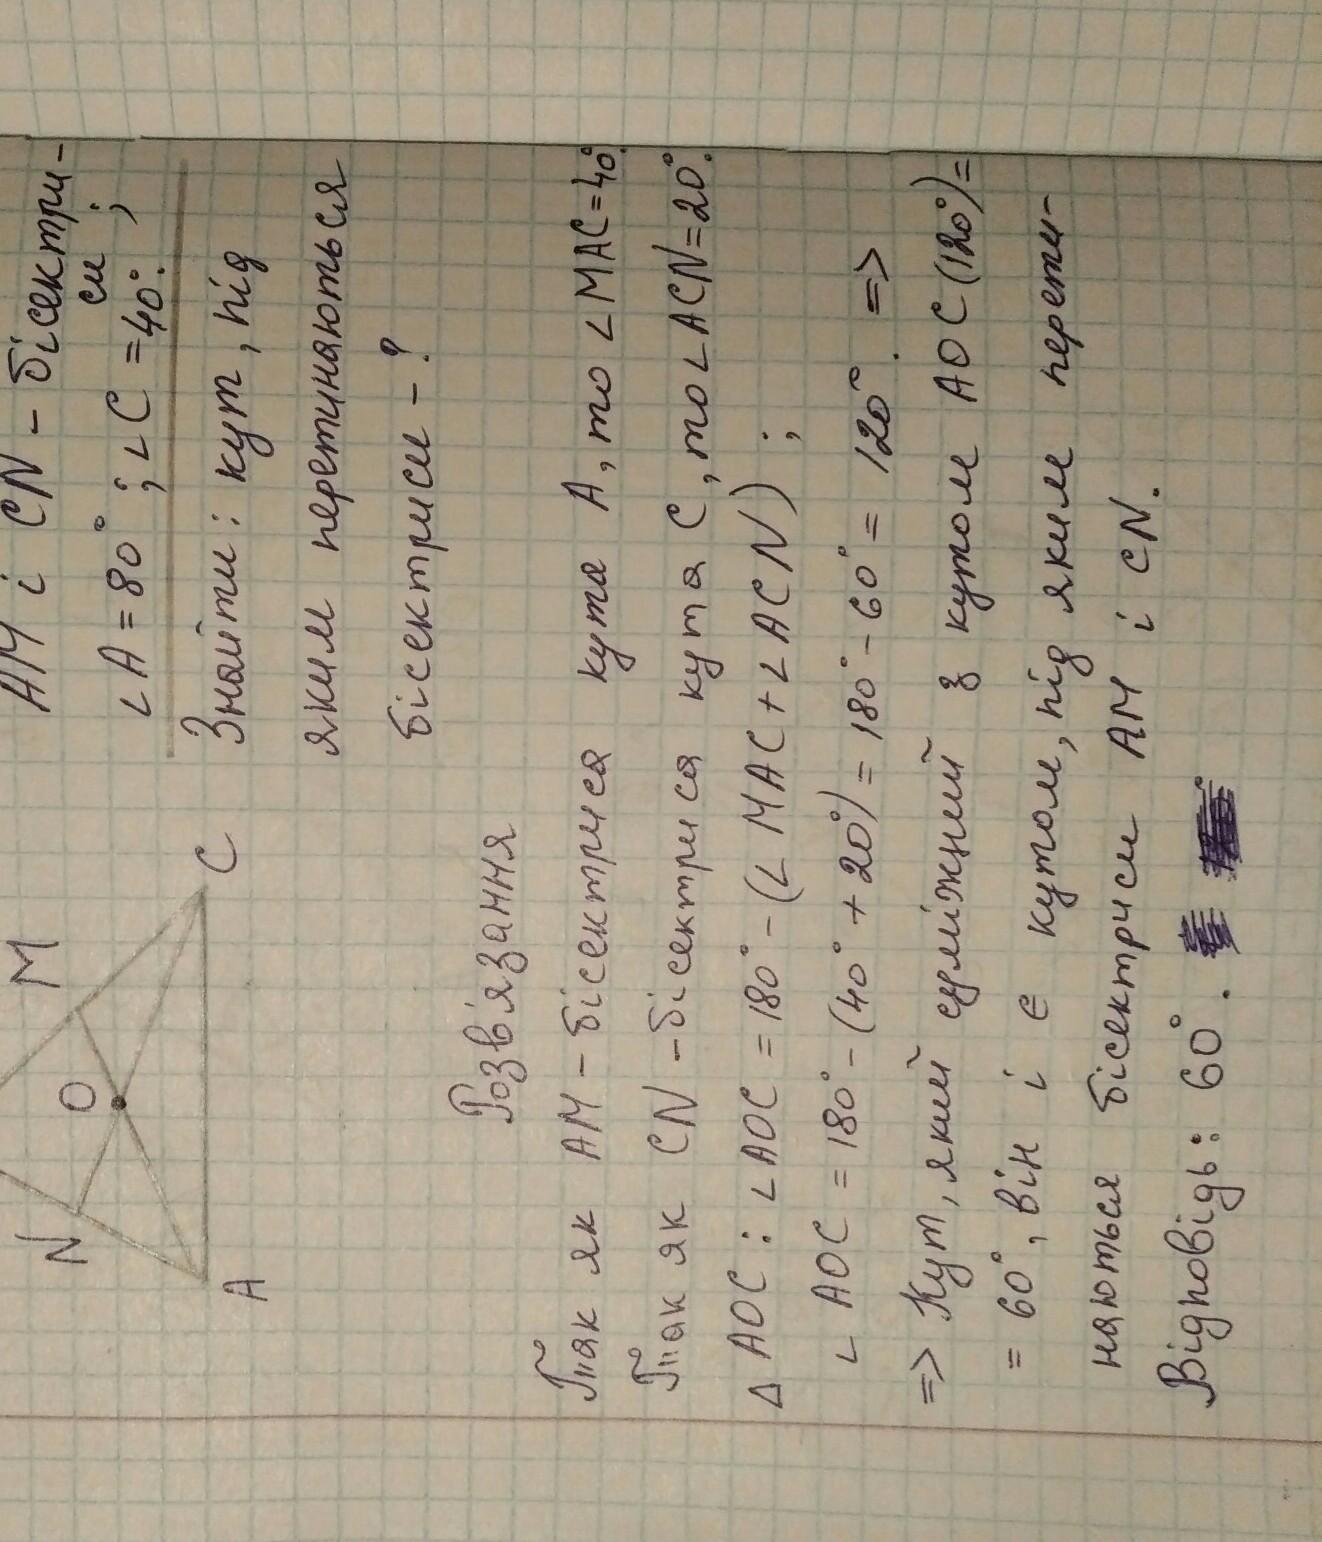 AM і CN - бісектри-
си ;
∠A = 80° ; ∠C = 40°.
Знайти: кут, під
яким перетинаються
бісектриси - ?
M
N
O
A
C
Розв'язання
Так як AM - бісектриса кута A, то ∠MAC = 40°.
Так як CN - бісектриса кута C, то ∠ACN = 20°.
Δ AOC: ∠AOC = 180° - (∠MAC + ∠ACN) ;
∠AOC = 180° - (40° + 20°) = 180° - 60° = 120°. =>
=> Кут, який суміжний з кутом AOC (120°) =
= 60°, він і є кутом, під яким перети-
наються бісектриси AM і CN.
Відповідь: 60°.